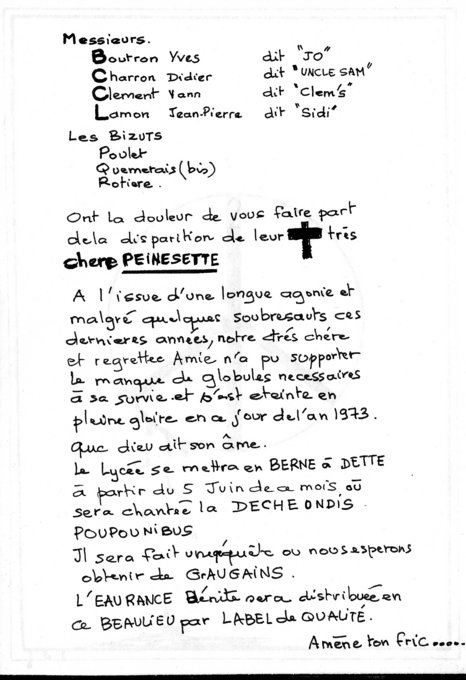 Messieurs.
Boutron Yves dit "JO"
Charron Didier dit "UNCLE SAM"
Clement Yann dit "Clem's"
Lamon Jean-Pierre dit "Sidi"
Les BIZUTS
Poulet
Quemerais (bis)
Rotiere.
Ont la douleur de vous faire part
dela disparition de leur très
chere PEINESETTE
A l'issue d'une longue agonie et
malgré quelques soubresauts ces
dernieres années, notre très chére
et regrettee Amie n'a pu supporter
le manque de globules necessaires
à sa survie et s'est eteinte en
pleine gloire en ce jour de l'an 1973.
Que dieu ait son âme.
Le Lycée se mettra en BERNE à DETTE
à partir du 5 Juin de ce mois, où
sera chantée la DECHE ONDIS
POUPOUNIBUS
Il sera fait une quête ou nous esperons
obtenir de GRAUGAINS.
L'EAURANCE Bénite sera distribuée en
ce BEAULIEU par LABEL de QUALITÉ.
Amène ton fric.....